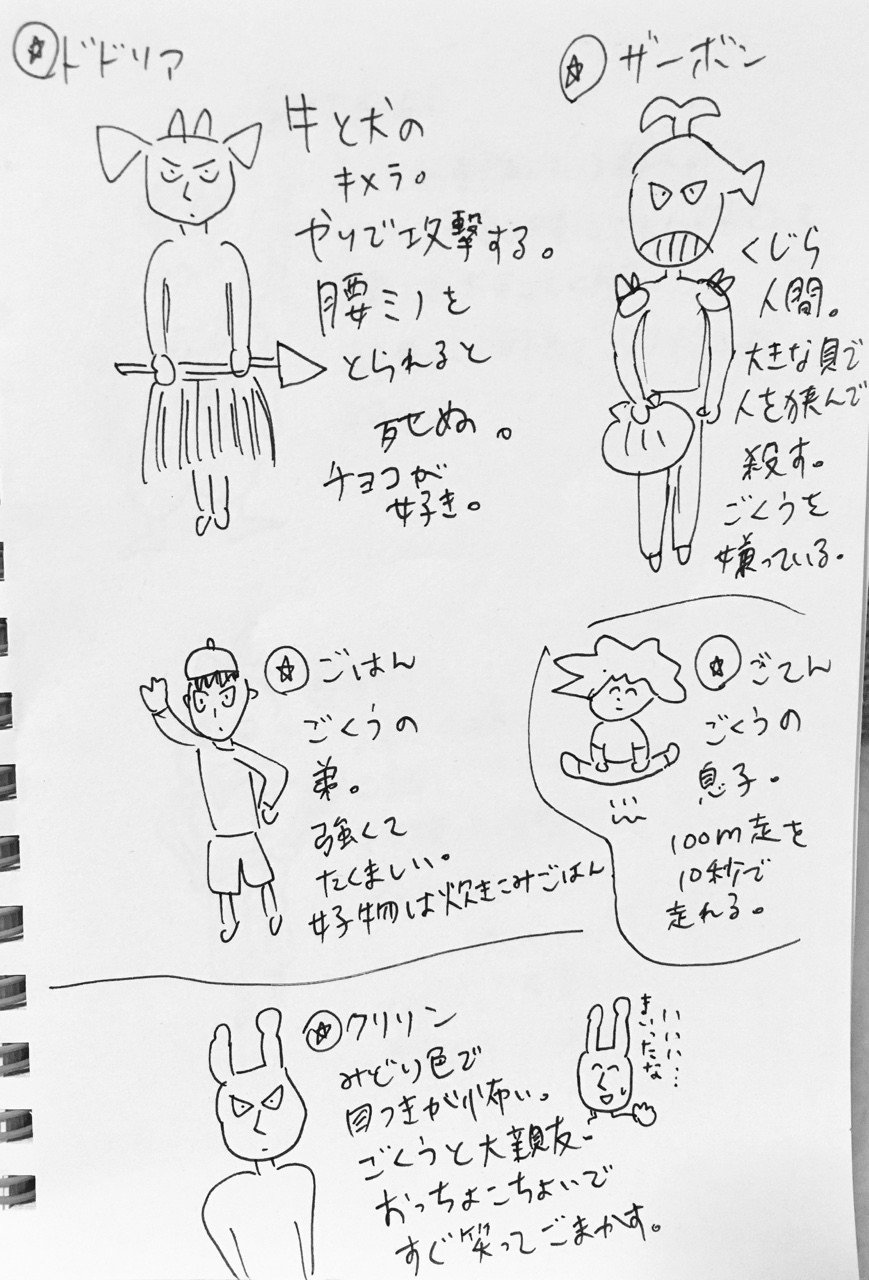 ドドリア
牛と犬の
キメラ。
やりで攻撃する。
腰ミノを
とられると
死ぬ。
チョコが
好き。
ザーボン
くじら
人間。
大きな貝で
人を狭んで
殺す。
ごくうを
嫌っている。
ごはん
ごくうの
弟。
強くて
たくましい。
好物は炊きこみごはん
ごてん
ごくうの
息子。
100m走を
10秒で
走れる。
クリリン
みどり色で
目つきが怖い。
ごくうと大親友ー
おっちょこちょいで
すぐ笑ってごまかす。
いいい…
まいったな